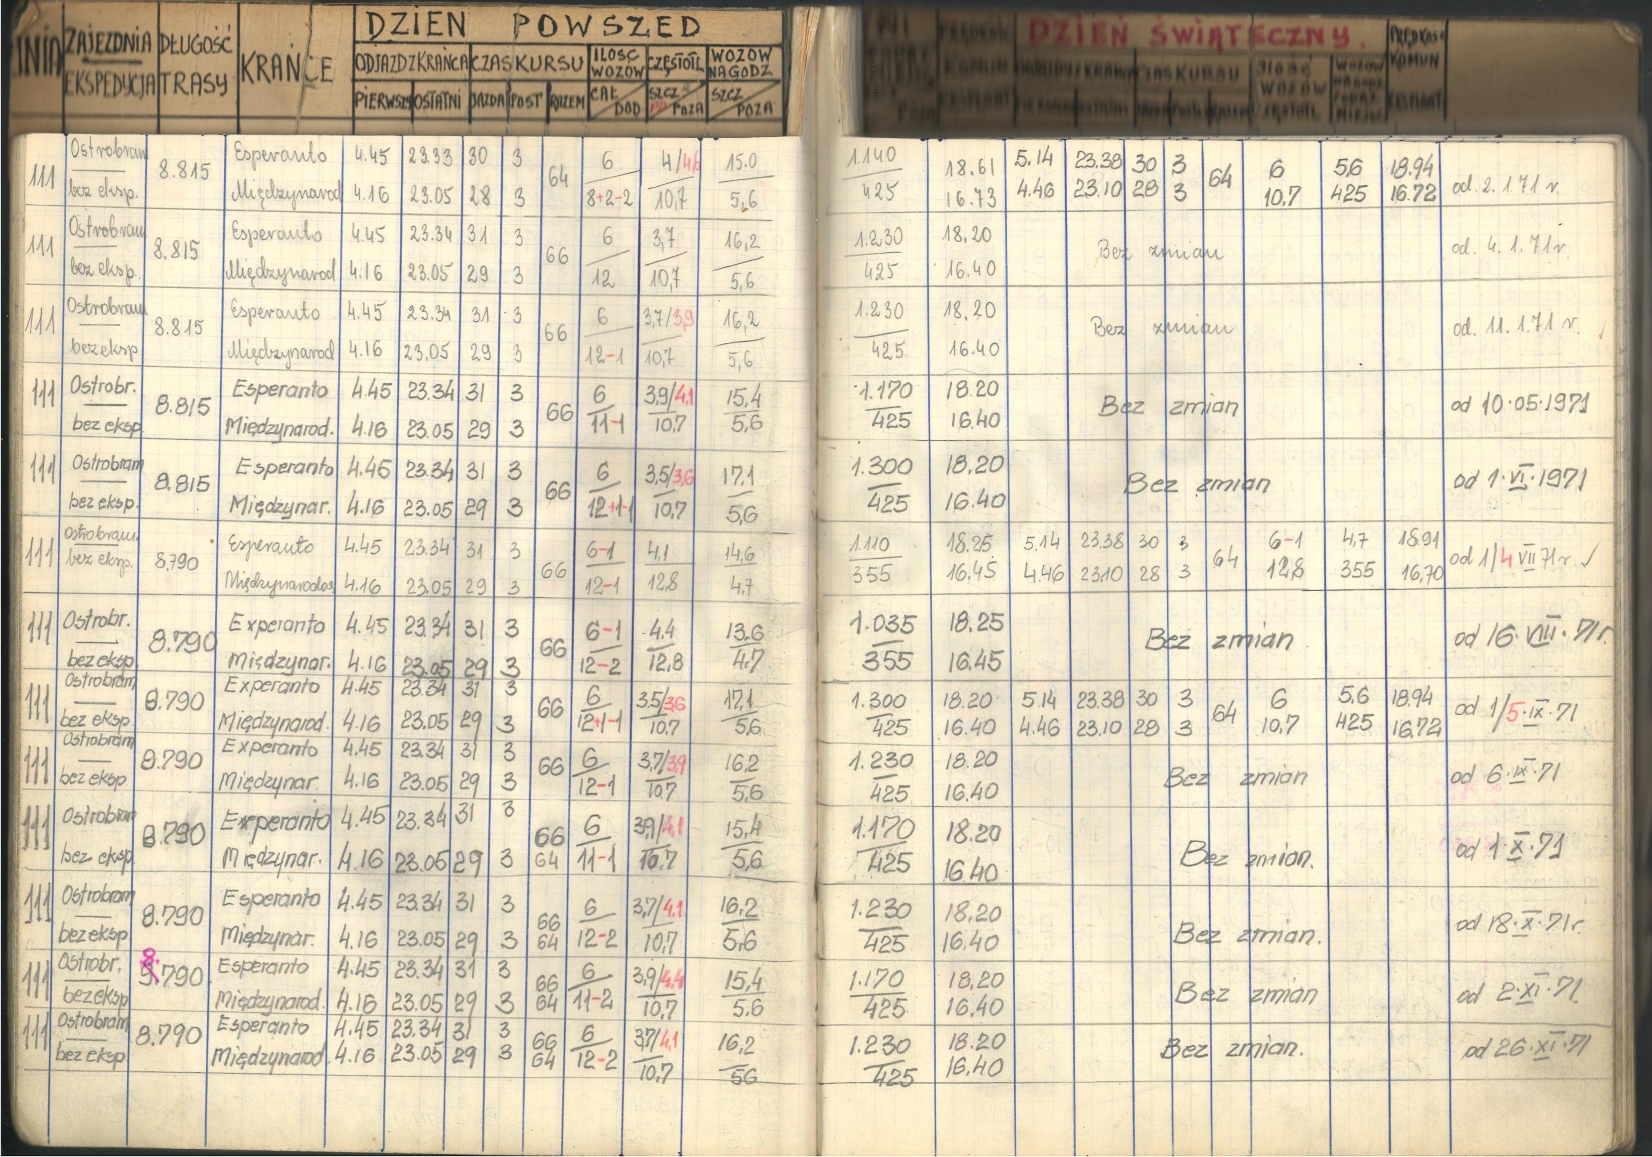 DZIEŃ POWSZED
LINIA ZAJEZDNIA DŁUGOŚĆ KRAŃCE ODJAZD Z KRAŃCA CZAS KURSU ILOŚĆ WOZÓW CZĘSTOTL WOZÓW NA GODZ
EKSPEDYCJA TRASY PIERWSZY OSTATNI JAZDA POST RAZEM CAŁ DOD SZCZ POZA SZCZ POZA
DZIEŃ ŚWIĄTECZNY. PRĘDKOŚĆ KOMUN
111 Ostrobram 8.815 Esperanto 4.45 23.33 30 3 64 6 4/4,6 15.0 1.140 18.61 5.14 23.38 30 3 64 6 5,6 18.94 od. 2.1.71 r.
bez eksp. Międzynarod 4.16 23.05 28 3 8+2-2 10,7 5,6 425 16.73 4.46 23.10 28 3 10.7 425 16.72
111 Ostrobram 8.815 Esperanto 4.45 23.34 31 3 66 6 3,7 16,2 1.230 18,20 Bez zmian od. 4.1.71r.
bez eksp. Międzynarod 4.16 23.05 29 3 12 10,7 5,6 425 16.40
111 Ostrobram 8.815 Esperanto 4.45 23.34 31 3 66 6 3,7/3,9 16,2 1.230 18,20 Bez zmian od. 11.1.71 r.
bez eksp Międzynarod 4.16 23.05 29 3 12-1 10,7 5,6 425 16.40
111 Ostrobr. 8.815 Esperanto 4.45 23.34 31 3 66 6 3,9/4,1 15,4 1.170 18.20 Bez zmian od 10.05.1971
bez eksp Międzynarod. 4.16 23.05 29 3 11-1 10.7 5,6 425 16.40
111 Ostrobram 8.815 Esperanto 4.45 23.34 31 3 66 6 3,5/3,6 17,1 1.300 18.20 Bez zmian od 1.VI.1971
bez eksp. Międzynar. 4.16 23.05 29 3 12+1-1 10.7 5,6 425 16.40
111 Ostrobram. 8.790 Esperanto 4.45 23.34 31 3 66 6-1 4,1 14,6 1.110 18.25 5.14 23.38 30 3 64 6-1 4,7 18.91 od 1/4 VII 71 r.
bez eksp. Międzynarodos 4.16 23.05 29 3 12-1 12,8 4,7 355 16.45 4.46 23.10 28 3 12,8 355 16,70
111 Ostrobr. 8.790 Experanto 4.45 23.34 31 3 66 6-1 4.4 13.6 1.035 18.25 Bez zmian od 16.VIII.71r.
bez eksp. Międzynar. 4.16 23.05 29 3 12-2 12,8 4.7 355 16.45
111 Ostrobram 8.790 Experanto 4.45 23.34 31 3 66 6 3.5/3,6 17,1 1.300 18.20 5.14 23.38 30 3 64 6 5,6 18.94 od 1/5.IX.71
bez eksp. Międzynarod. 4.16 23.05 29 3 12+1-1 10.7 5,6 425 16.40 4.46 23.10 28 3 10,7 425 16.72
111 Ostrobram 8.790 Experanto 4.45 23.34 31 3 66 6 3,7/3,9 16,2 1.230 18.20 Bez zmian od 6.IX.71
bez eksp Międzynar. 4.16 23.05 29 3 12-1 10,7 5,6 425 16.40
111 Ostrobram 8.790 Experanto 4.45 23.34 31 3 66 6 3,9/4,1 15,4 1.170 18.20 Bez zmian. od 1.X.71
bez eksp Międzynar. 4.16 23.05 29 3 64 11-1 10.7 5,6 425 16.40
111 Ostrobram 8.790 Esperanto 4.45 23.34 31 3 66 6 3,7/4,1 16,2 1.230 18,20 Bez zmian. od 18.X.71r.
bez eksp Międzynar. 4.16 23.05 29 3 64 12-2 10,7 5,6 425 16,40
111 Ostrobr. 8.790 Esperanto 4.45 23.34 31 3 66 6 3,9/4,4 15,4 1.170 18,20 Bez zmian od 2.XI.71
bez eksp Międzynarod. 4.16 23.05 29 3 64 11-2 10,7 5.6 425 16,40
111 Ostrobram 8.790 Esperanto 4.45 23.34 31 3 66 6 3,7/4,1 16,2 1.230 18.20 Bez zmian. od 26.XI.71
bez eksp. Międzynarod 4.16 23.05 29 3 64 12-2 10,7 56 425 16,40